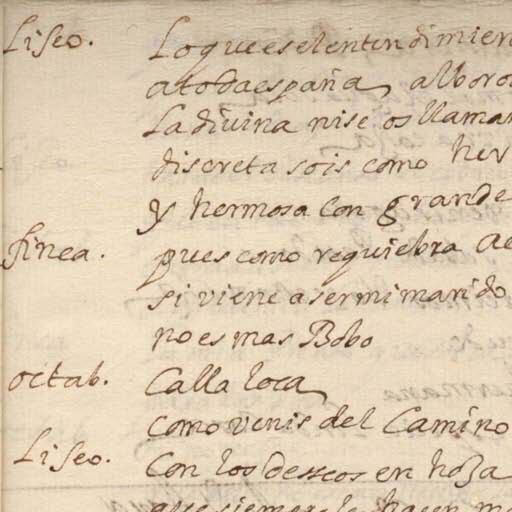 Liseo. Lo que es el entendimien
a toda españa, alboro
La divina nise os llaman
discreta sois como her
y hermosa con grande
finea. pues como requiebra ae
si viene a ser mi marido
no es mas Bobo
octab. Calla loca
como venis del Camino
Liseo. Con los desseos en hoza
que siempre le hacen m